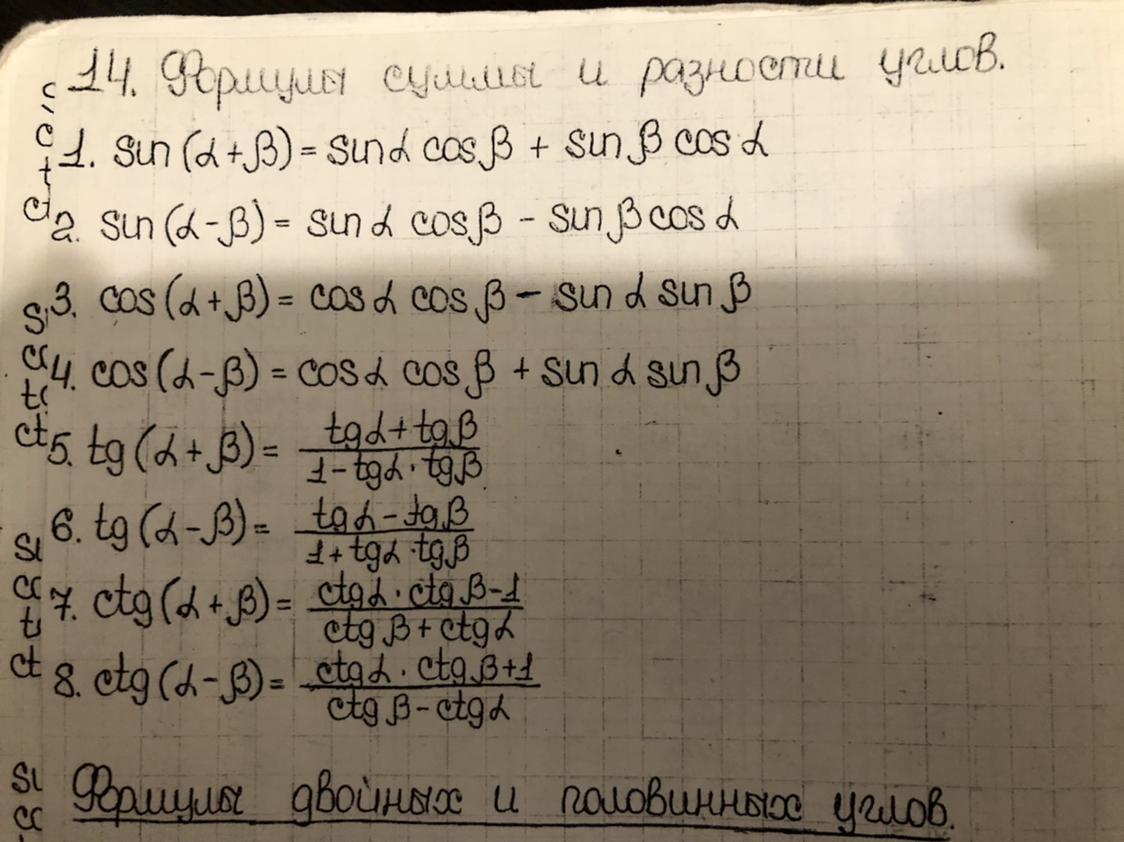 14. Формулы суммы и разности углов.
1. sin(α+β)=sinα cosβ + sinβ cosα
2. sin(α-β)= sinα cosβ - sinβ cosα
3. cos(α+β)= cosα cosβ - sinα sinβ
4. cos(α-β)= cosα cosβ + sinα sinβ
5. tg(α+β)= tgα+tgβ / 1-tgα·tgβ
6. tg(α-β)= tgα-tgβ / 1+tgα·tgβ
7. ctg(α+β)= ctgα·ctgβ-1 / ctgβ+ctgα
8. ctg(α-β)= ctgα·ctgβ+1 / ctgβ-ctgα
Формулы двойных и половинных углов.